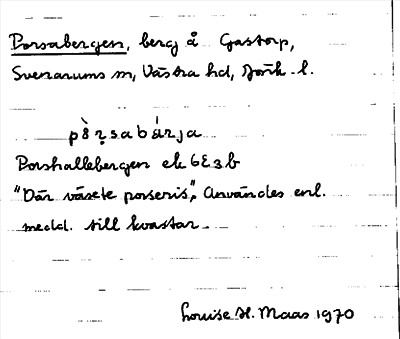 Porsabergen, berg å Gastorp,
Svenarums sn, Västra hd, Jönk. l.
pòr̥sabárja
Porshallebergen ek 6E3b
"Där växte porseris", Användes enl.
medd. till kvastar.
Louise H. Maas 1970